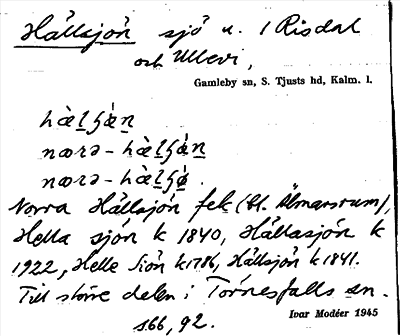 Hällsjön sjö u. 1 Risdal
och Ullevi,
Gamleby sn, S. Tjusts hd, Kalm. l.
hæ̀lʃǿn
nærə-hæ̀lʃǿn
nærə-hæ̀lʃǿ.
Norra Hällsjön fek (bl. Älmarsrum),
Hella sjön k 1840, Hällasjön k
1922, Helle Siön k 1786, Hällsjön k 1841.
Till större delen i Törnesfalls sn.
s. 66, 92.
Ivar Modéer 1945